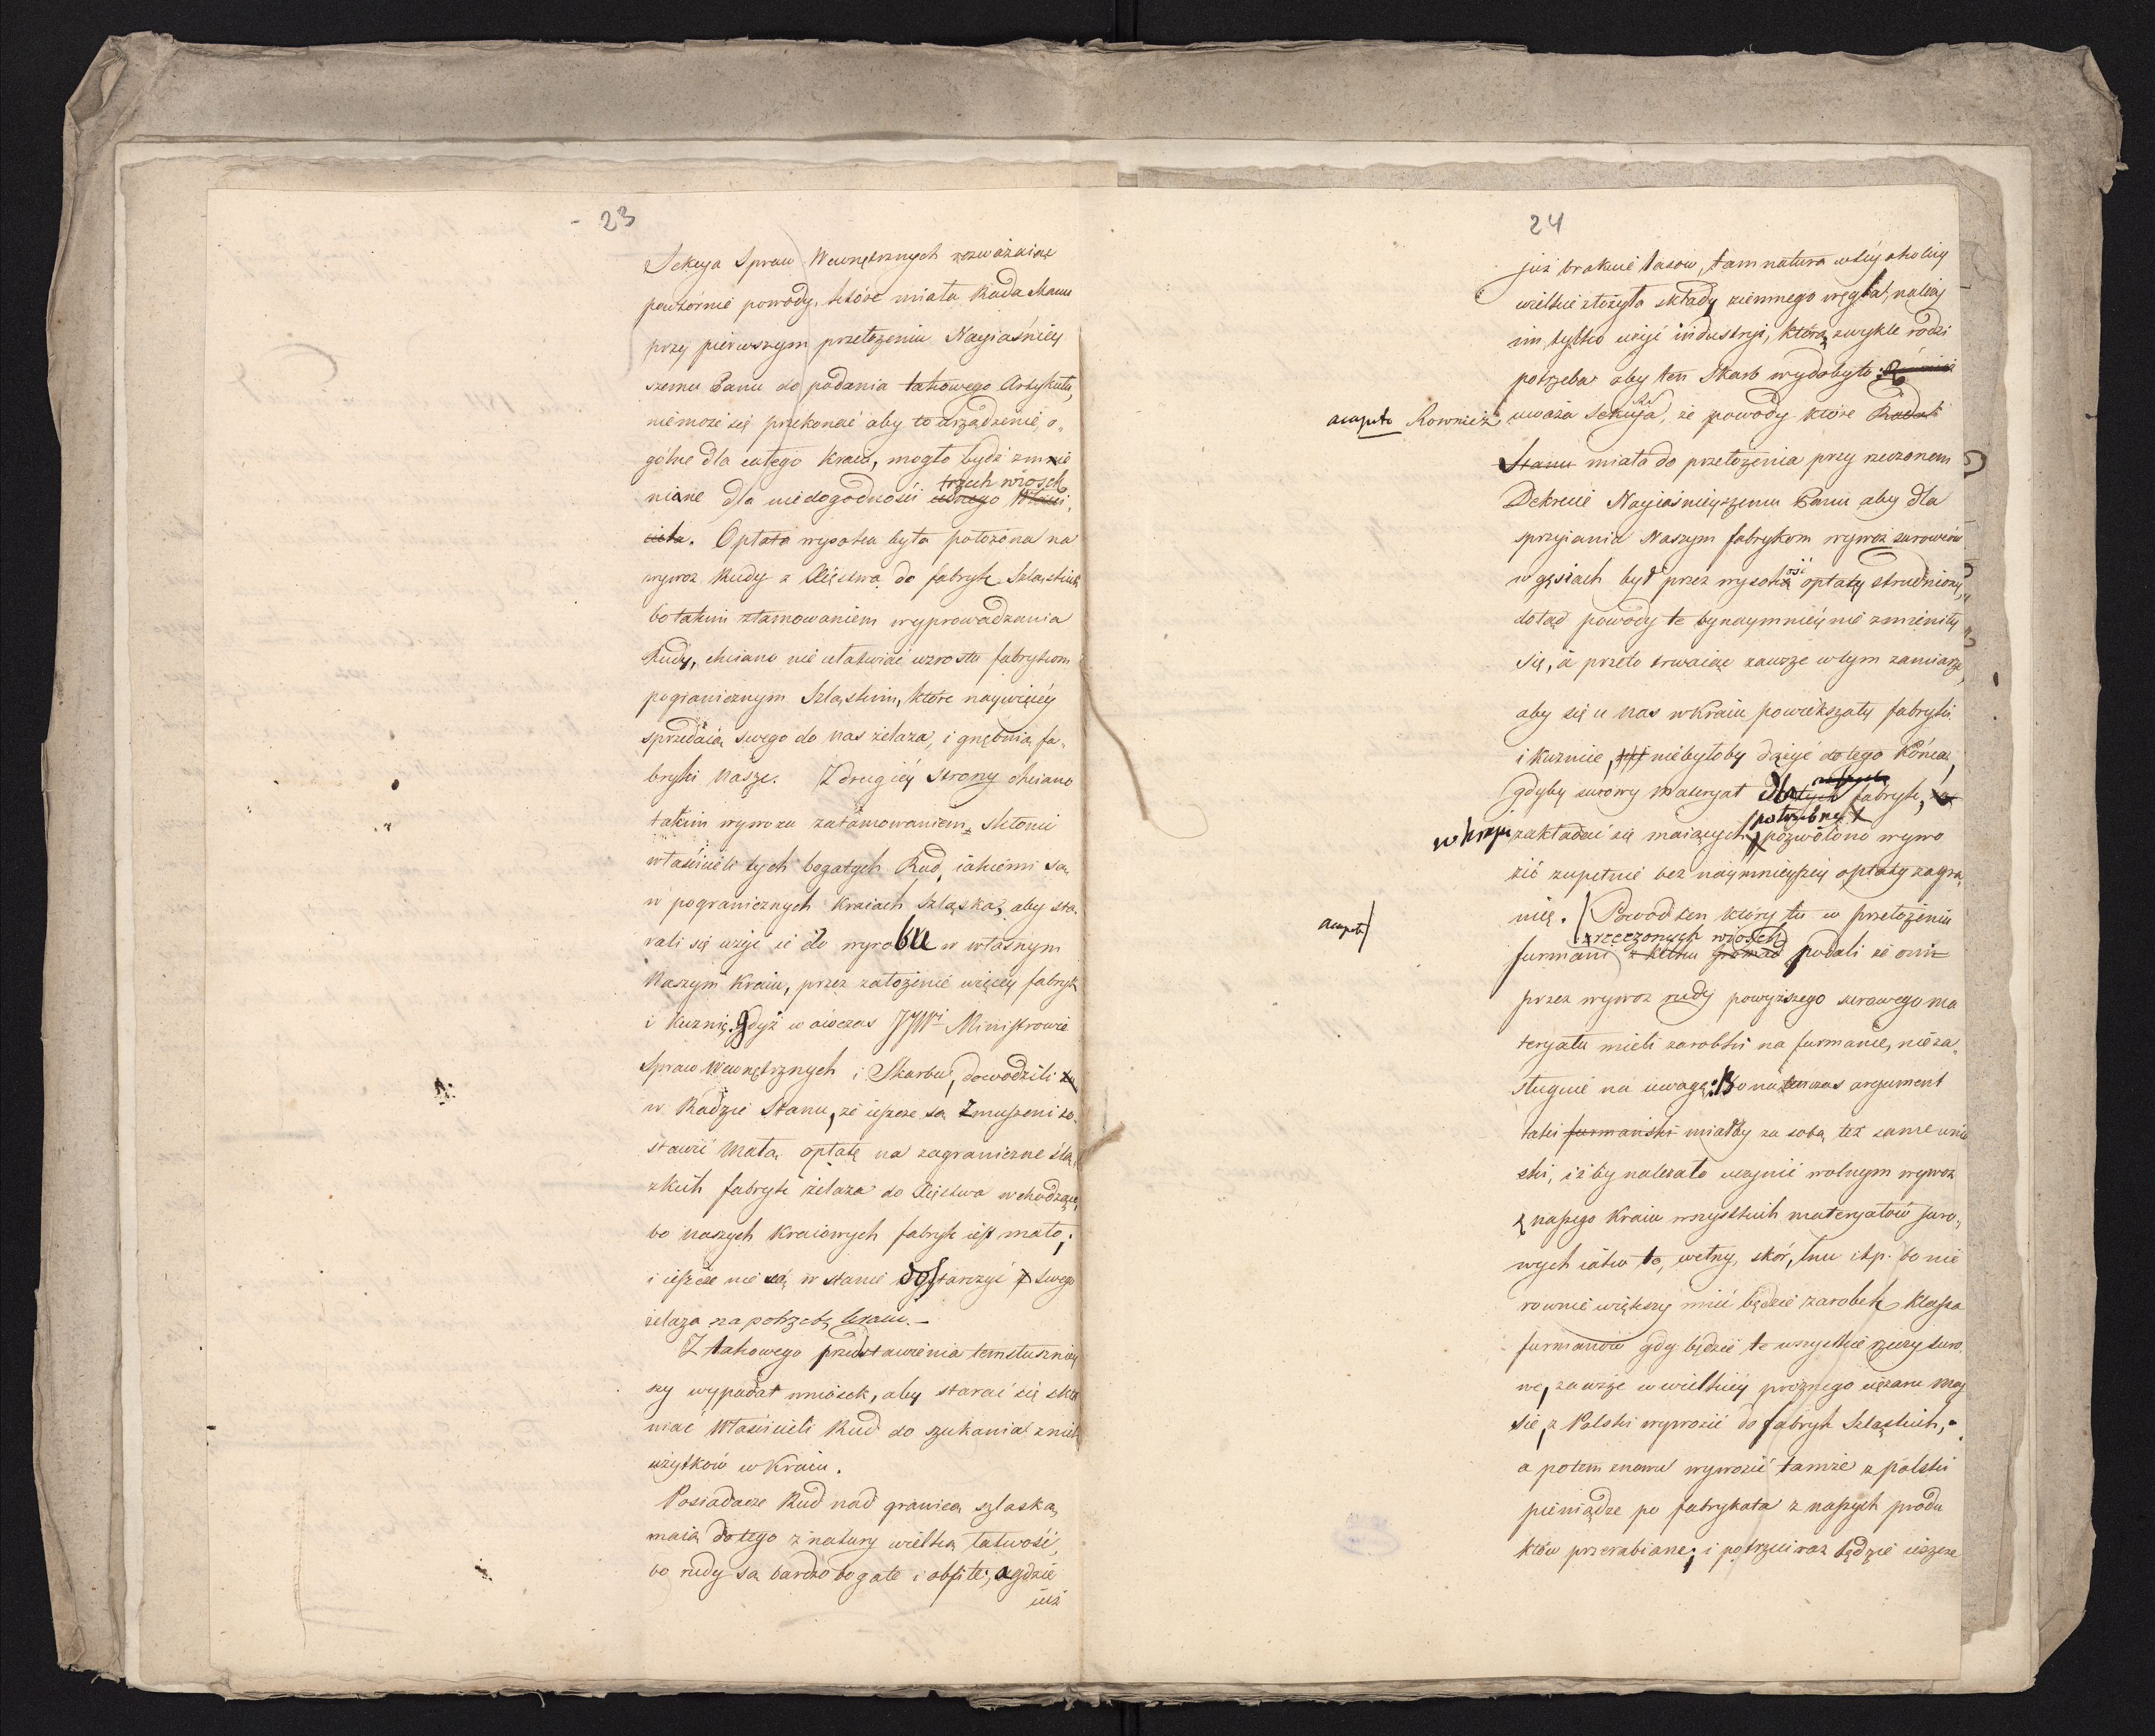 - 23
Sekcya Spraw Wewnętrznych rozważaiąc
powtórnie powody, które miała Rada Stanu
przy pierwszym przełożeniu Nayiaśniey
szemu Panu do podania takowego Artykułu,
niemoże się przekonać aby to urządzenie, o„
gólne dla całego Kraiu, mogło bydź zmie
nione dla niedogodności trzech wiosek
Opłata wysoka była położona na
wywoz Rudy z Xięstwa do fabryk Szląskich
bo takim ztamowaniem wyprowadzania
Rudy, chciano nie ułatwiać wzrostu fabrykom
pogranicznym Szląskim, które naywięcey
sprzedaią swego do nas żelaza, i gnębią fa„
bryki nasze. Z drugiey strony chciano
takim wywozu zatamowaniem, skłonić
właścicieli tych bogatych Rud, iakiemi są
w pogranicznych Kraiach Szląska, aby sta„
rali się użyć ie do wyrobu w własnym
Naszym Kraiu, przez założenie więcey fabryk
i Kuznic. Gdyż wówczas JJWi Ministrowie
Spraw Wewnętrznych i Skarbu, dowodzili
w Radzie Stanu, że ieszcze są zmuszeni zo„
stawić małą opłatę na zagraniczne ślą„
zkich fabryk żelaza do Xięstwa wchodzące,
bo naszych kraiowych fabryk iest mało,
i ieszcze nie są w stanie dostarczyć swego
żelaza na potrzebę kraiu.—
Z takowego przedstawienia tem słuszniey
szy wypadał wniosek, aby starać się skła
niać Właścicieli Rud do szukania z nich
użytków w Kraiu.
Posiadacze Rud nad granicą szląską
maią do tego z natury wielką łatwość,
bo rudy są bardzo bogate i obfite; a gdzie
iuż
24
już brakuie lasow, tam natura w tey okolicy
wielkie złożyła składy ziemnego węgla; należy
im tylko użyć industryi, którą zwykle rodzi
potrzeba aby ten Skarb wydobyto.
accepto Rownież uważa Sekcya, że powody które Rada
Stanu miała do przełożenia przy rzeczonem
Dekrecie Nayiaśnieyszemu Panu aby dla
sprzyiania Naszym fabrykom wywoz surowców
w gęsiach był przez wysokość opłaty utrudniony,
dotąd powody te bynaymniey nie zmieniły
się, a przeto trwaiąc zawsze w tym zamiarze,
aby się u nas w Kraiu powiększały fabryki
i kuznie, niebyłoby dążyć do tego Końca,
gdyby surowy materyał dla fabryk,
w kraju zakładać się maiących potrzebny pozwolono wywo
zić zupełnie bez naymnieyszey opłaty zagra„
nicę. Powod ten który tu w przełożeniu
accepto
furmani z rzeczonych wiosek podali że oni
przez wywoz rudy powyższego surowego ma
teryału mieli zarobki na furmanie, nieza„
sługuie na uwagę: Bo natenczas argument
taki furmański miałby za sobą też same wnio
ski, iż by należało uczynić wolnym wywoz
z naszego Kraiu wszystkich materyałów suro„
wych iako to, wełny, skór, lnu itp. bo nie
rownie większy mieć będzie zarobek klassa
furmanow gdy będzie te wszystkie rzeczy suro„
we, zawsze w wielkiey prożnego ciężaru mas
sie, z Polski wywozić do fabryk Szląskich,
a potem znowu wywozić tamże z polski
pieniądze po fabrykata z naszych produ
któw przerabiane; i potrzeci raz będzie ieszcze